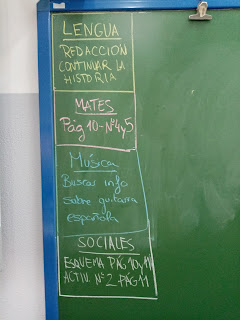 LENGUA
REDACCIÓN
CONTINUAR LA
HISTORIA
MATES
Pág 10 - Nº 4 y 5
Música
Buscar info
sobre guitarra
española
SOCIALES
ESQUEMA PÁG 10 y 11
ACTIV. Nº 2 PÁG 11